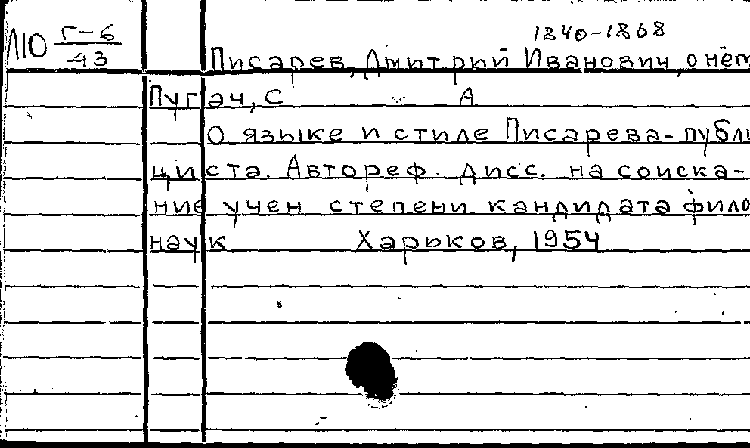 1840-1868
Л10 Г-6
43
Писарев, Дмитрий Иванович, о нём
Пугач, С А
О языке и стиле Писарева-публи
циста. Автореф. дисс. на соиска-
ние учен степени кандидата фило
наук Харьков, 1954